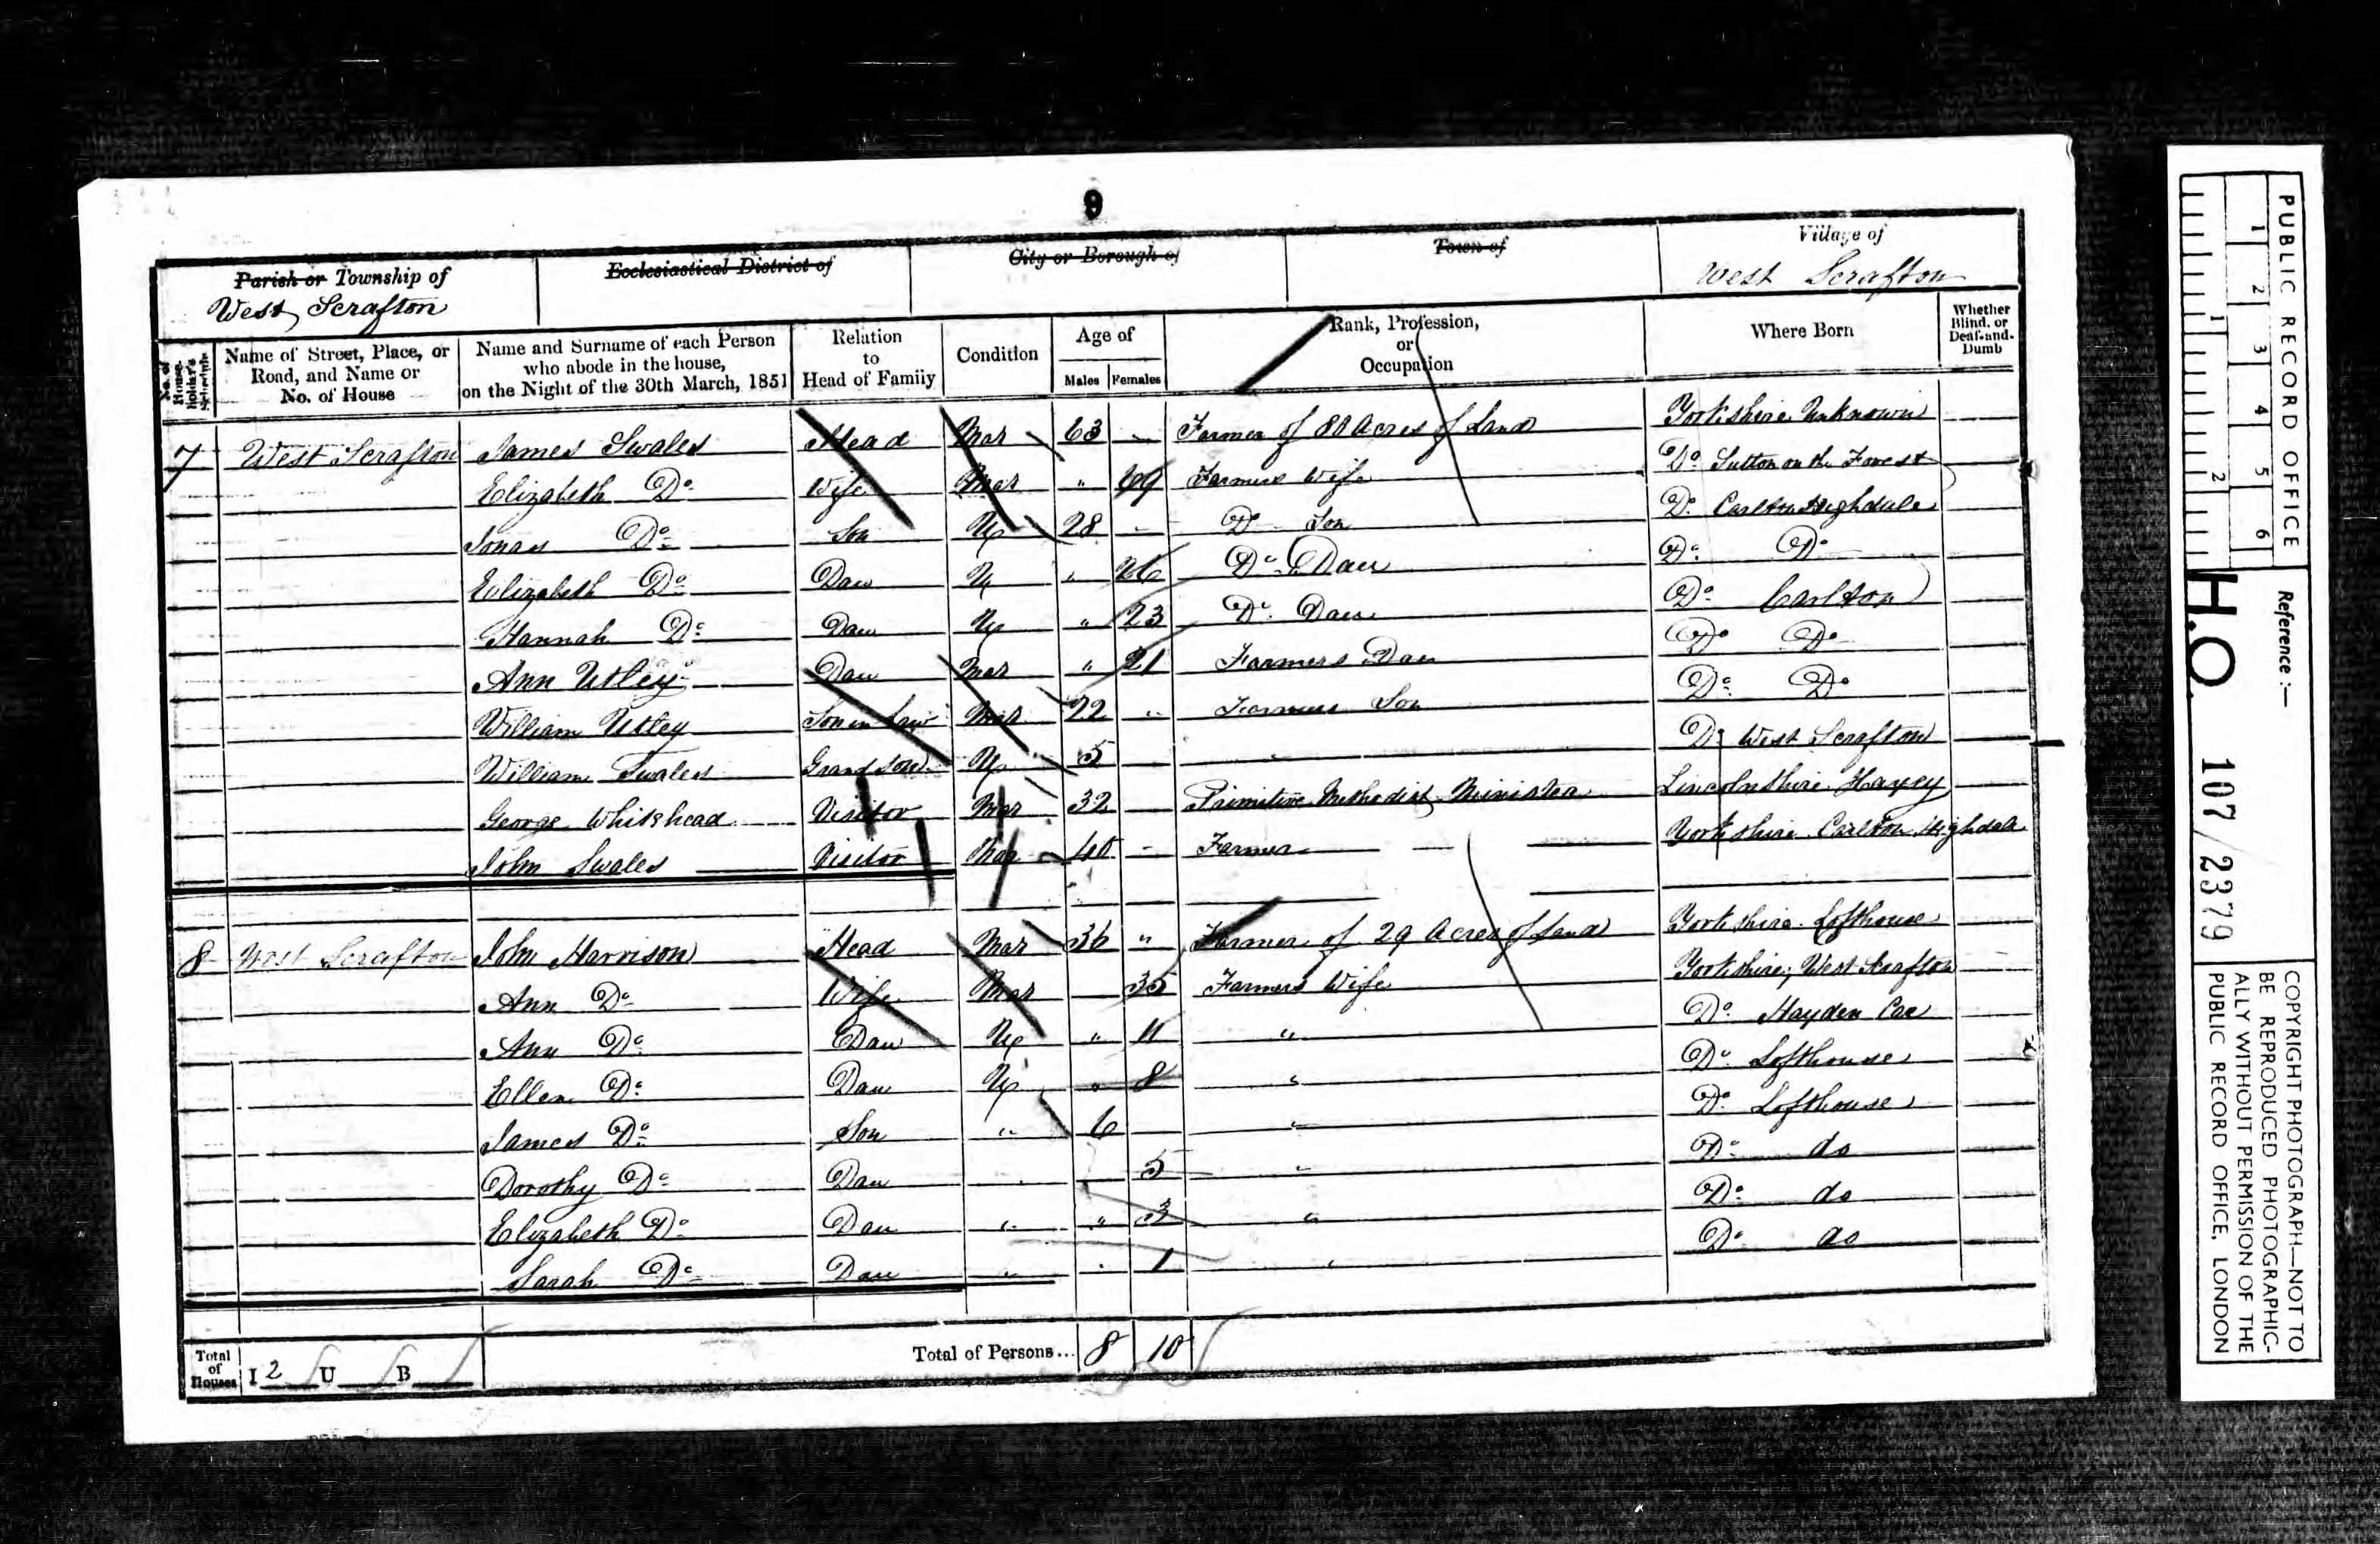 9
Parish or Township of
West Scrafton
Ecclesiastical District of
City or Borough of
Town of
Village of
West Scrafton
No. of House-holder's Schedule
Name of Street, Place, or Road, and Name or No. of House
Name and Surname of each Person who abode in the house, on the Night of the 30th March, 1851
Relation to Head of Family
Condition
Age of
Males Females
Rank, Profession, or Occupation
Where Born
Whether Blind, or Deaf-and-Dumb
7 West Scrafton James Swales Head Mar 63 - Farmer of 80 Acres of Land Yorkshire Unknown
Elizabeth Do Wife Mar " 69 Farmers Wife Do Sutton on the Forest
Jonas Do Son U 28 - Do Son Do Carlton Highdale
Elizabeth Do Daw U " 26 Do Daw Do Do
Hannah Do Daw U " 23 Do Daw Do Carlton
Ann Utley Daw Mar " 21 Farmers Daw Do Do
William Utley Son in Law Mar 22 " Farmers Son Do Do
William Swales Grand Son U 5 " Do West Scrafton
George Whitehead Visitor Mar 32 Primitive Methodist Minister Lincolnshire Haxey
John Swales Visitor Mar 40 - Farmer Yorkshire Carlton Highdale
8 West Scrafton John Harrison Head Mar 36 " Farmer of 29 Acres of Land Yorkshire Lofthouse
Ann Do Wife Mar 35 Farmers Wife Yorkshire, West Scrafton
Ann Do Daw U " 11 " Do Hayden Car
Ellen Do Daw U " 8 " Do Lofthouse
James Do Son " 6 " Do Lofthouse
Dorothy Do Daw 5 " Do do
Elizabeth Do Daw " " 3 " Do do
Sarah Do Daw " " 1 " Do do
Total of Houses I 2 U B
Total of Persons... 8 10
PUBLIC RECORD OFFICE
1 2 3 4 5 6
1 2
Reference :-
H.O. 107/2379
COPYRIGHT PHOTOGRAPH—NOT TO
BE REPRODUCED PHOTOGRAPHIC-
ALLY WITHOUT PERMISSION OF THE
PUBLIC RECORD OFFICE, LONDON